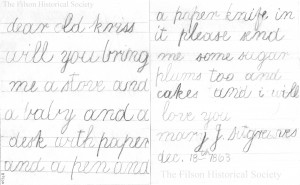 The Filson Historical Society
dear old kriss
will you bring
me a stove and
a baby and a
desk with paper
and a pen and
a paper knife in
it please send
me some sugar
plums too and
cakes and i will
love you
mary J
dec. 18th 1863
The Filson Historical Society